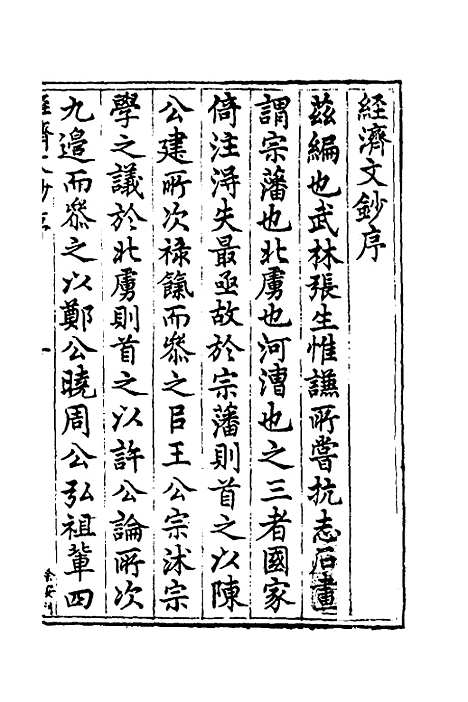 經濟文鈔序
茲編也武林張生惟讌所嘗抗志石畫
謂宗藩也北虜也河漕也之三者國家
倚注淂失最亟故於宗藩則首之以陳
公建所次祿餼而叅之㠯王公宗沭宗
學之議於北虜則首之以許公論所次
九邉而叅之以鄭公曉周公弘祖輩四
經濟文鈔序 一